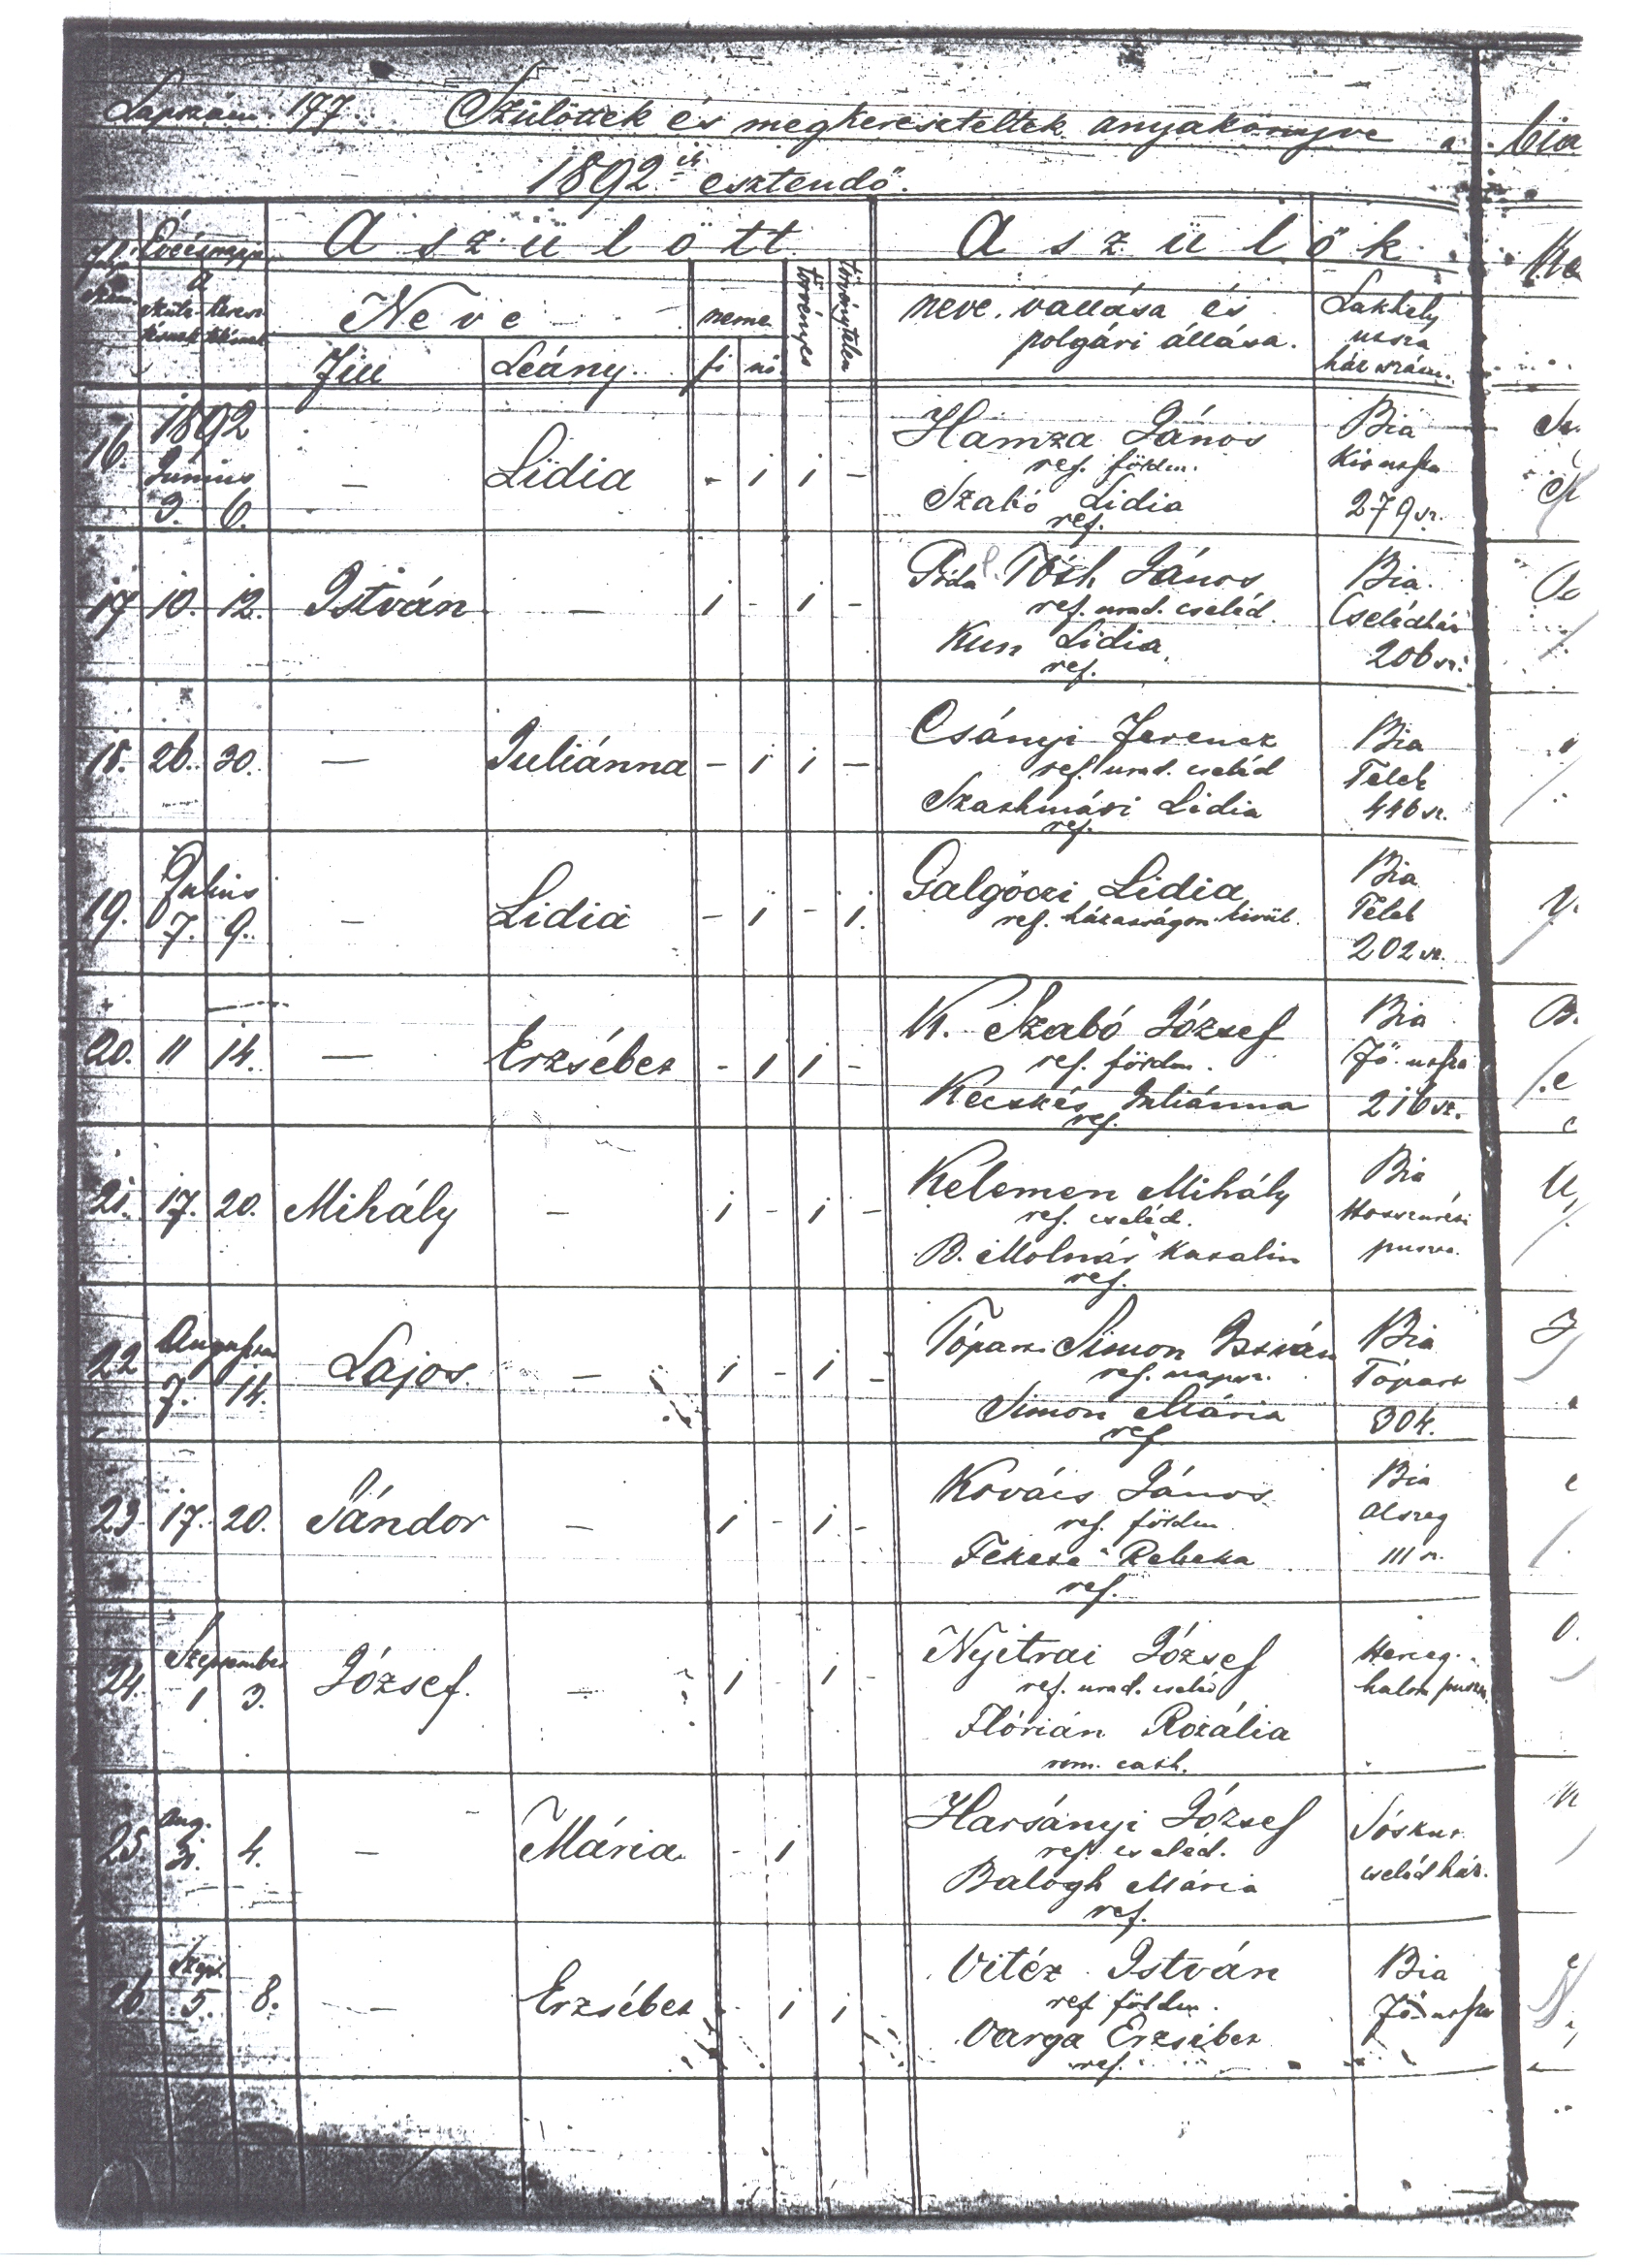 Lapszám 177. Szülöttek és megkereszteltek anyakönyve a bia
1892ik esztendő.
A szülött A szülők
Neve neme törvényes törvénytelen neve, vallása és Lakhely
polgári állása. utcza
Fiu Leány fi nő ház szám.
1892 Hamza János Bia
16. Június — Lidia - 1 1 - ref. földm. Kis utcza
3. 6. Szabó Lidia 279 sz.
ref.
Tóth János Bia
17 10. 12. István — 1 - 1 - ref. urad. cseléd. Cselédház
Kun Lidia 206 sz.
ref.
Csányi Ferencz Bia
18. 26. 30. — Juliánna - 1 1 - ref. urad. cseléd Telek
Szathmári Lidia 446 sz.
ref.
Julius Galgóczi Lidia Bia
19. 7. 9. — Lidia - 1 - 1. ref. házasságon kivül. Telek
202 sz.
K. Szabó József Bia
20. 11 14. — Erzsébet - 1 1 - ref. földm. Fő utcza
Kecskés Juliánna 216 sz.
ref.
Kelemen Mihály Bia
21. 17. 20. Mihály — 1 - 1 - ref. cseléd.
B. Molnár Katalin puszta.
ref.
Augusztus Tóparti Simon István Bia
22 7. 14. Lajos. — 1 - 1 - ref. napsz. Tópart
Simon Mária 304.
ref.
Kovács János Bia
23 17. 20. Sándor — 1 - 1 - ref. földm. Alszeg
Fekete Rebeka 111 sz.
ref.
Szeptember Nyitrai József Herczeg-
24. 1. 3. József. — 1 - 1 - ref. urad. cseléd halom puszta
Flórián Rozália
rom. cath.
Aug. Harsányi József Sóskut
25. 31. 4. — Mária - 1 ref. cseléd. cselédház.
Balogh Mária
ref.
Szept. Vitéz István Bia
26 5. 8. — Erzsébet - 1 1 ref. földm. Fő utcza
Varga Erzsébet
ref.